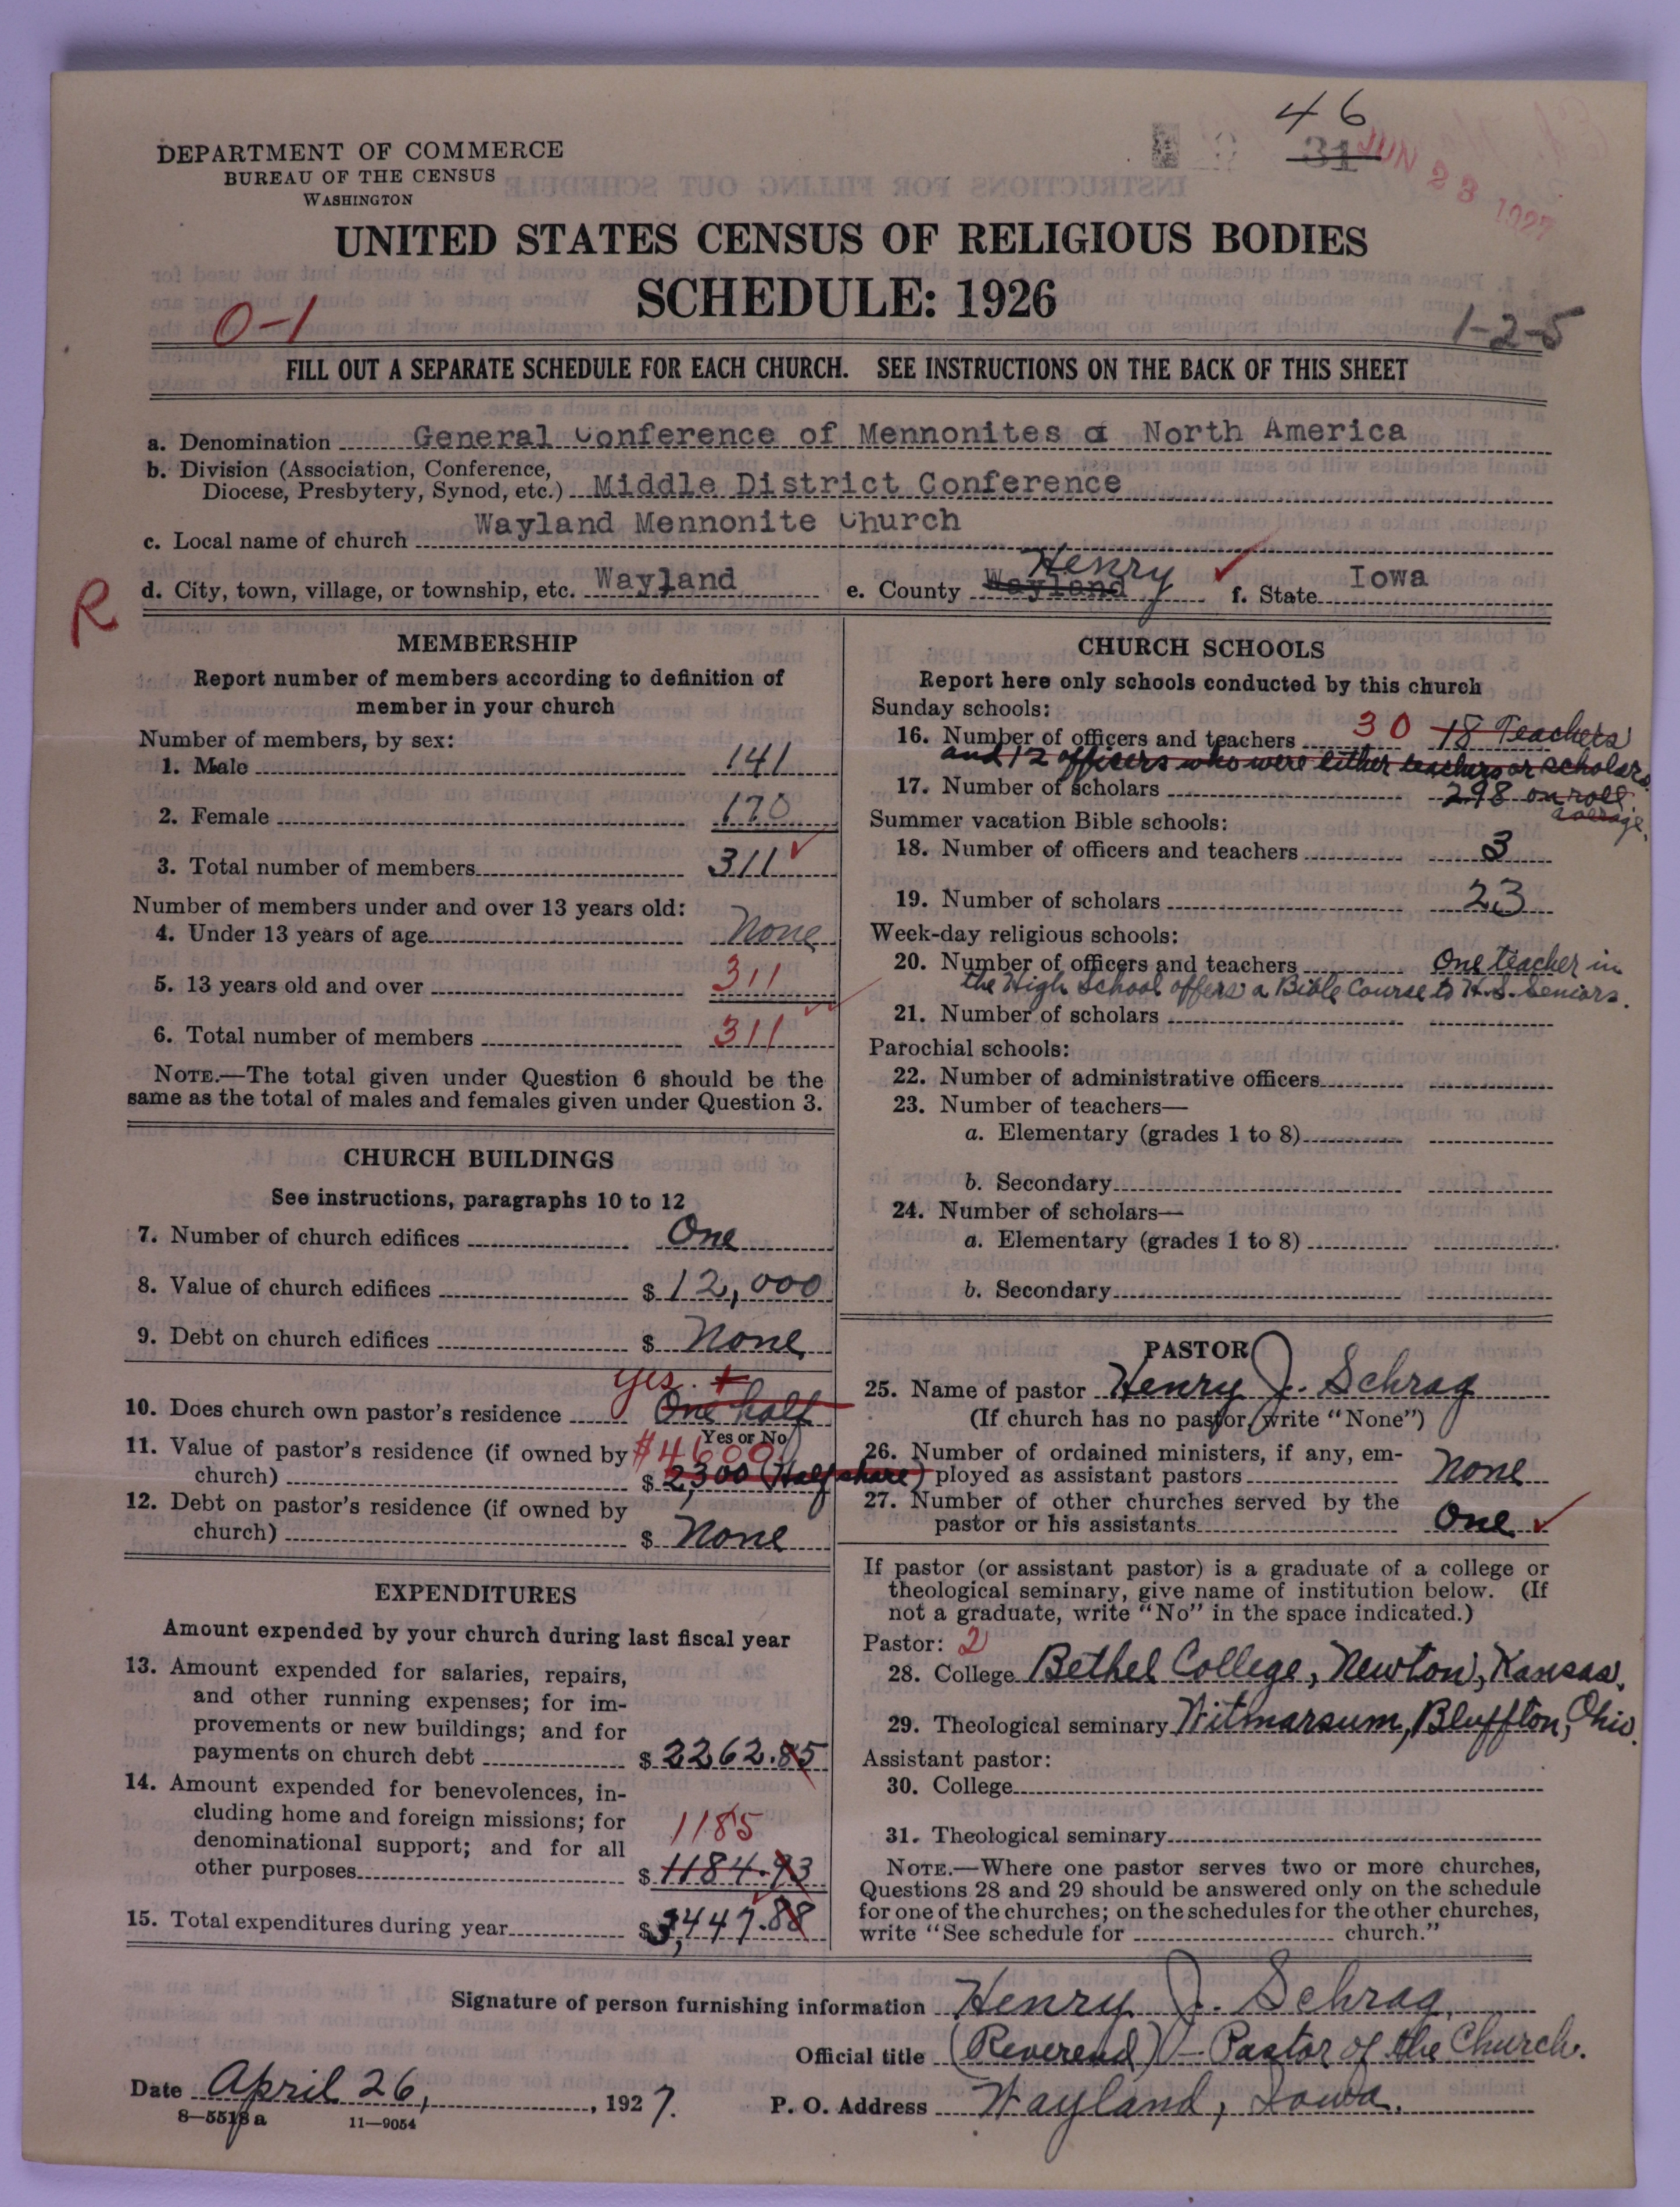 46
31
JUN 23 1927
DEPARTMENT OF COMMERCE
BUREAU OF THE CENSUS
WASHINGTON
UNITED STATES CENSUS OF RELIGIOUS BODIES
SCHEDULE: 1926
0-1
1-2-5
FILL OUT A SEPARATE SCHEDULE FOR EACH CHURCH. SEE INSTRUCTIONS ON THE BACK OF THIS SHEET
a. Denomination General Conference of Mennonites of North America
b. Division (Association, Conference,
Diocese, Presbytery, Synod, etc.) Middle District Conference
c. Local name of church Wayland Mennonite Church
R
d. City, town, village, or township, etc. Wayland e. County Wayland Henry f. State Iowa
MEMBERSHIP
Report number of members according to definition of
member in your church
Number of members, by sex:
1. Male 141
2. Female 170
3. Total number of members 311
Number of members under and over 13 years old:
4. Under 13 years of age None
5. 13 years old and over 311
6. Total number of members 311
NOTE.—The total given under Question 6 should be the
same as the total of males and females given under Question 3.
CHURCH BUILDINGS
See instructions, paragraphs 10 to 12
7. Number of church edifices One
8. Value of church edifices $ 12,000
9. Debt on church edifices $ None
yes.
10. Does church own pastor's residence One half
Yes or No
11. Value of pastor's residence (if owned by $4600
church) $ 2300 (Half share)
12. Debt on pastor's residence (if owned by
church) $ None
EXPENDITURES
Amount expended by your church during last fiscal year
13. Amount expended for salaries, repairs,
and other running expenses; for im-
provements or new buildings; and for
payments on church debt $ 2262.85
14. Amount expended for benevolences, in-
cluding home and foreign missions; for
denominational support; and for all 1185
other purposes $ 1184.93
15. Total expenditures during year $ 3,447.88
CHURCH SCHOOLS
Report here only schools conducted by this church
Sunday schools:
16. Number of officers and teachers 30 18 Teachers
and 12 officers who were either teachers or scholars
17. Number of scholars 298 on roll.
average.
Summer vacation Bible schools:
18. Number of officers and teachers 3
19. Number of scholars 23
Week-day religious schools:
20. Number of officers and teachers One teacher in
the High School offers a Bible Course to H.S. Seniors.
21. Number of scholars
Parochial schools:
22. Number of administrative officers
23. Number of teachers—
a. Elementary (grades 1 to 8)
b. Secondary
24. Number of scholars—
a. Elementary (grades 1 to 8)
b. Secondary
PASTOR
25. Name of pastor Henry J. Schrag
(If church has no pastor, write "None")
26. Number of ordained ministers, if any, em-
ployed as assistant pastors None
27. Number of other churches served by the
pastor or his assistants One
If pastor (or assistant pastor) is a graduate of a college or
theological seminary, give name of institution below. (If
not a graduate, write "No" in the space indicated.)
Pastor: 2
28. College Bethel College, Newton, Kansas.
29. Theological seminary Witmarsum, Bluffton, Ohio.
Assistant pastor:
30. College
31. Theological seminary
NOTE.—Where one pastor serves two or more churches,
Questions 28 and 29 should be answered only on the schedule
for one of the churches; on the schedules for the other churches,
write "See schedule for church."
Signature of person furnishing information Henry J. Schrag.
Official title (Reverend) - Pastor of the Church.
Date April 26, 1927. P. O. Address Wayland, Iowa.
8—5518a 11—9054